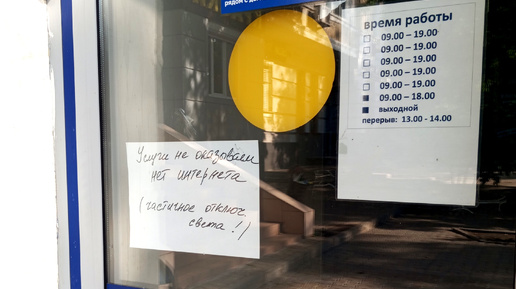 рядом с
время работы
09.00 – 19.00
09.00 – 19.00
09.00 – 19.00
09.00 – 19.00
09.00 – 19.00
09.00 – 18.00
выходной
перерыв: 13.00 - 14.00
Услуги не оказываем
нет интернета
(частичное отключ.
света!)